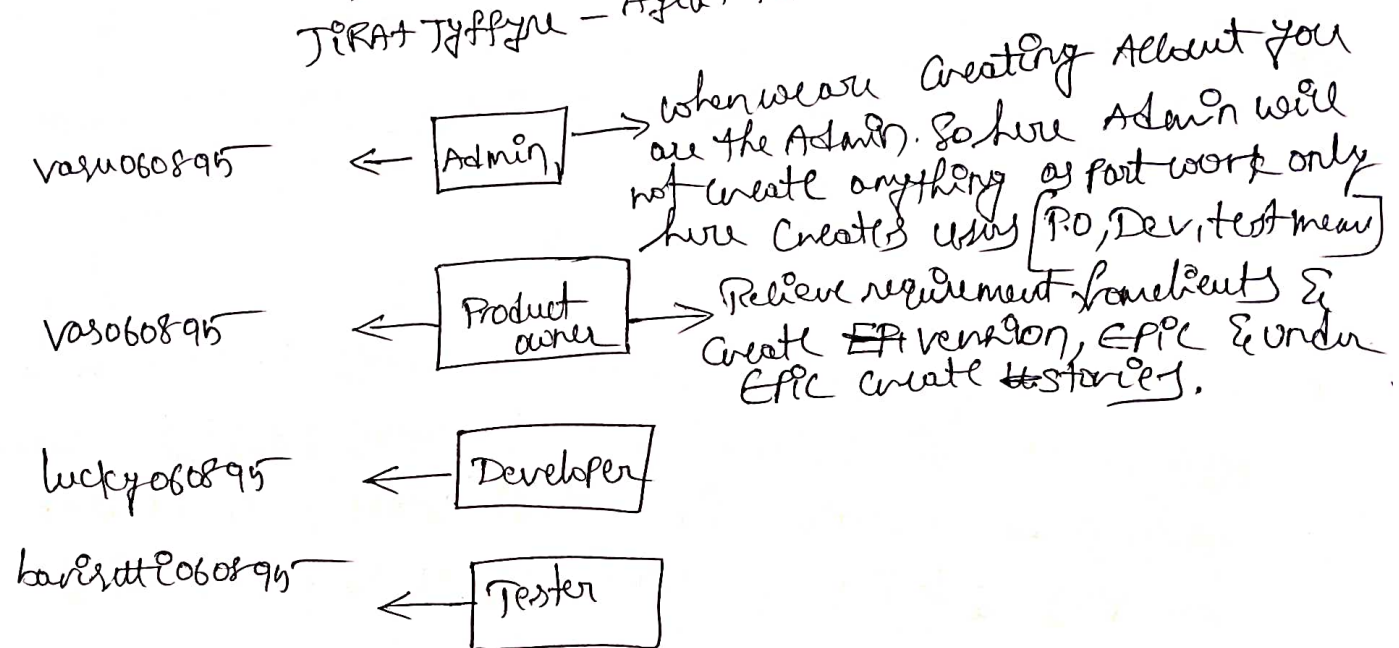 JiRA+ Tyffyre -
vasu060895 ← Admin → when we are Creating Allount you
are the Admin. So here Admin will
not create anything as part work only
here Creates users [P.O, Dev, test mean]
vas060895 ← Product owner → Relieve requirement from clients &
Create EPi version, EPiC & under
EPiC create us stories.
lucky060895 ← Developer
bavisatti060895 ← Tester